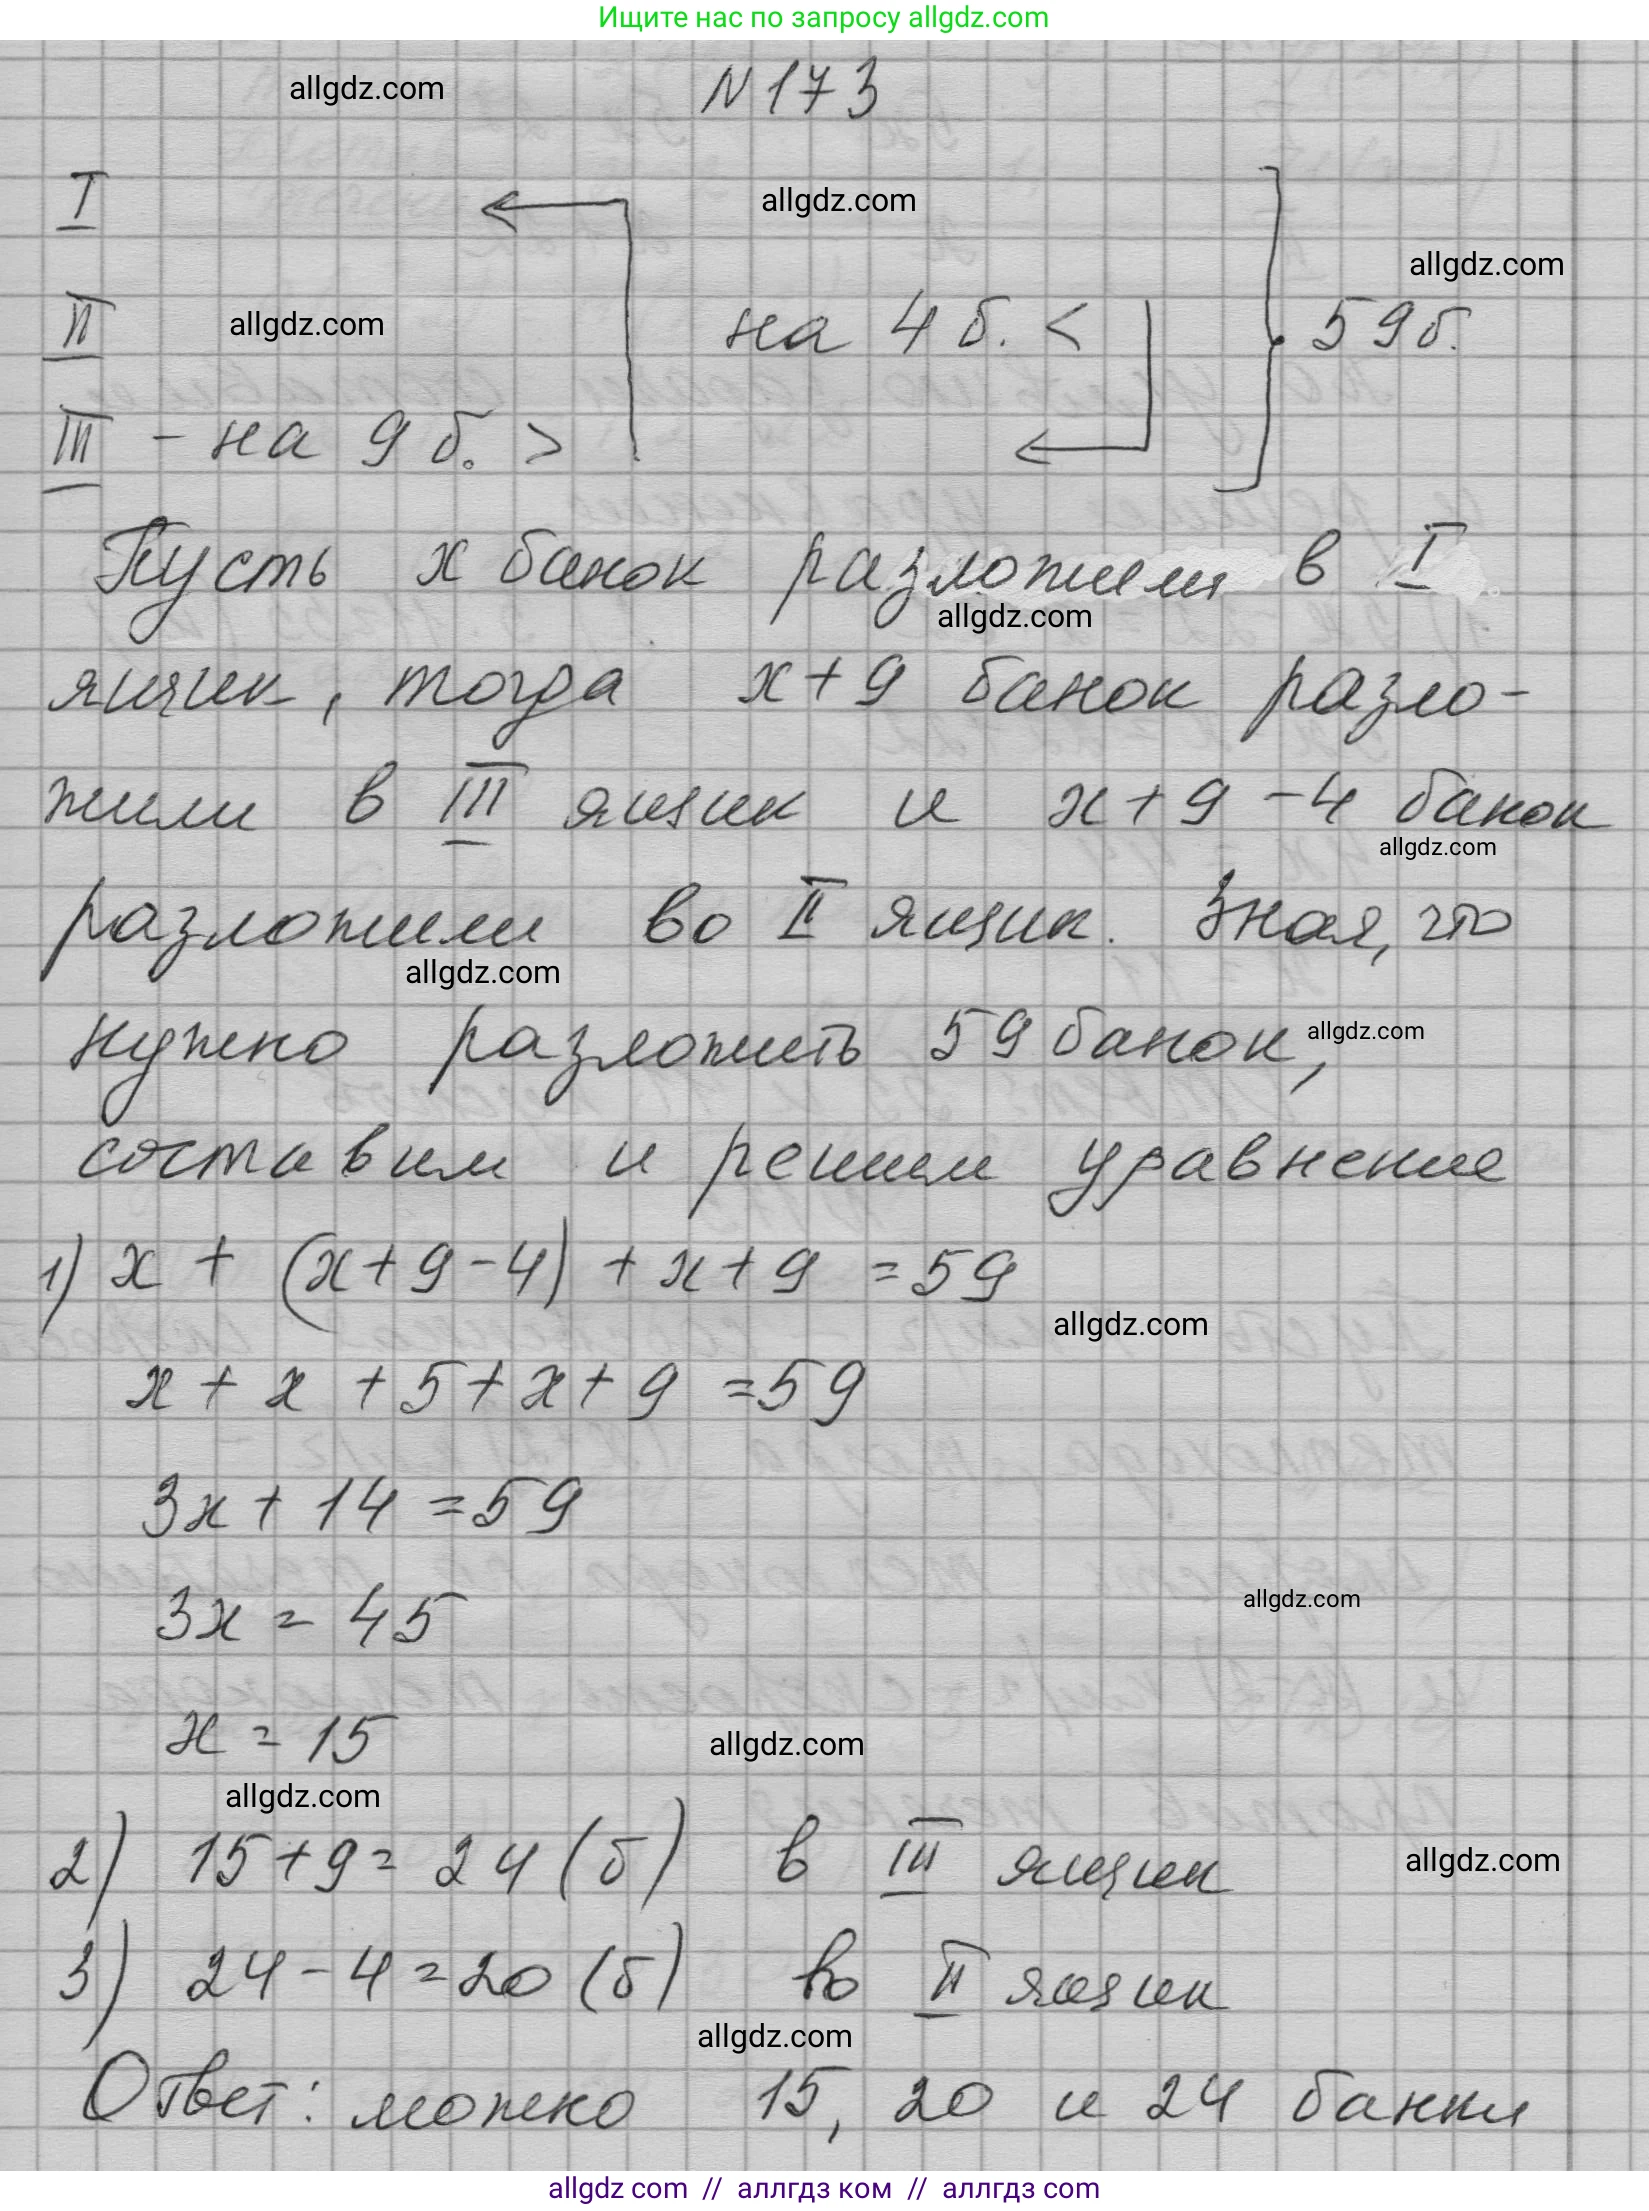 Ищите нас по запросу allgdz.com
allgdz.com
N 173
I
allgdz.com
allgdz.com
II
allgdz.com
на 4 б. <
59 б.
III - на 9 б. >
Пусть x банок разложили в I
allgdz.com
ящик, тогда x + 9 банок разло-
жили в III ящик и x + 9 - 4 банок
allgdz.com
разложили во II ящик. Зная, что
allgdz.com
нужно разложить 59 банок,
allgdz.com
составим и решим уравнение
1) x + (x + 9 - 4) + x + 9 = 59
allgdz.com
x + x + 5 + x + 9 = 59
3x + 14 = 59
3x = 45
allgdz.com
x = 15
allgdz.com
allgdz.com
2) 15 + 9 = 24 (б) в III ящик
allgdz.com
3) 24 - 4 = 20 (б) во II ящик
allgdz.com
Ответ: можно 15, 20 и 24 банки
allgdz com // аллгдз ком // аллгдз com